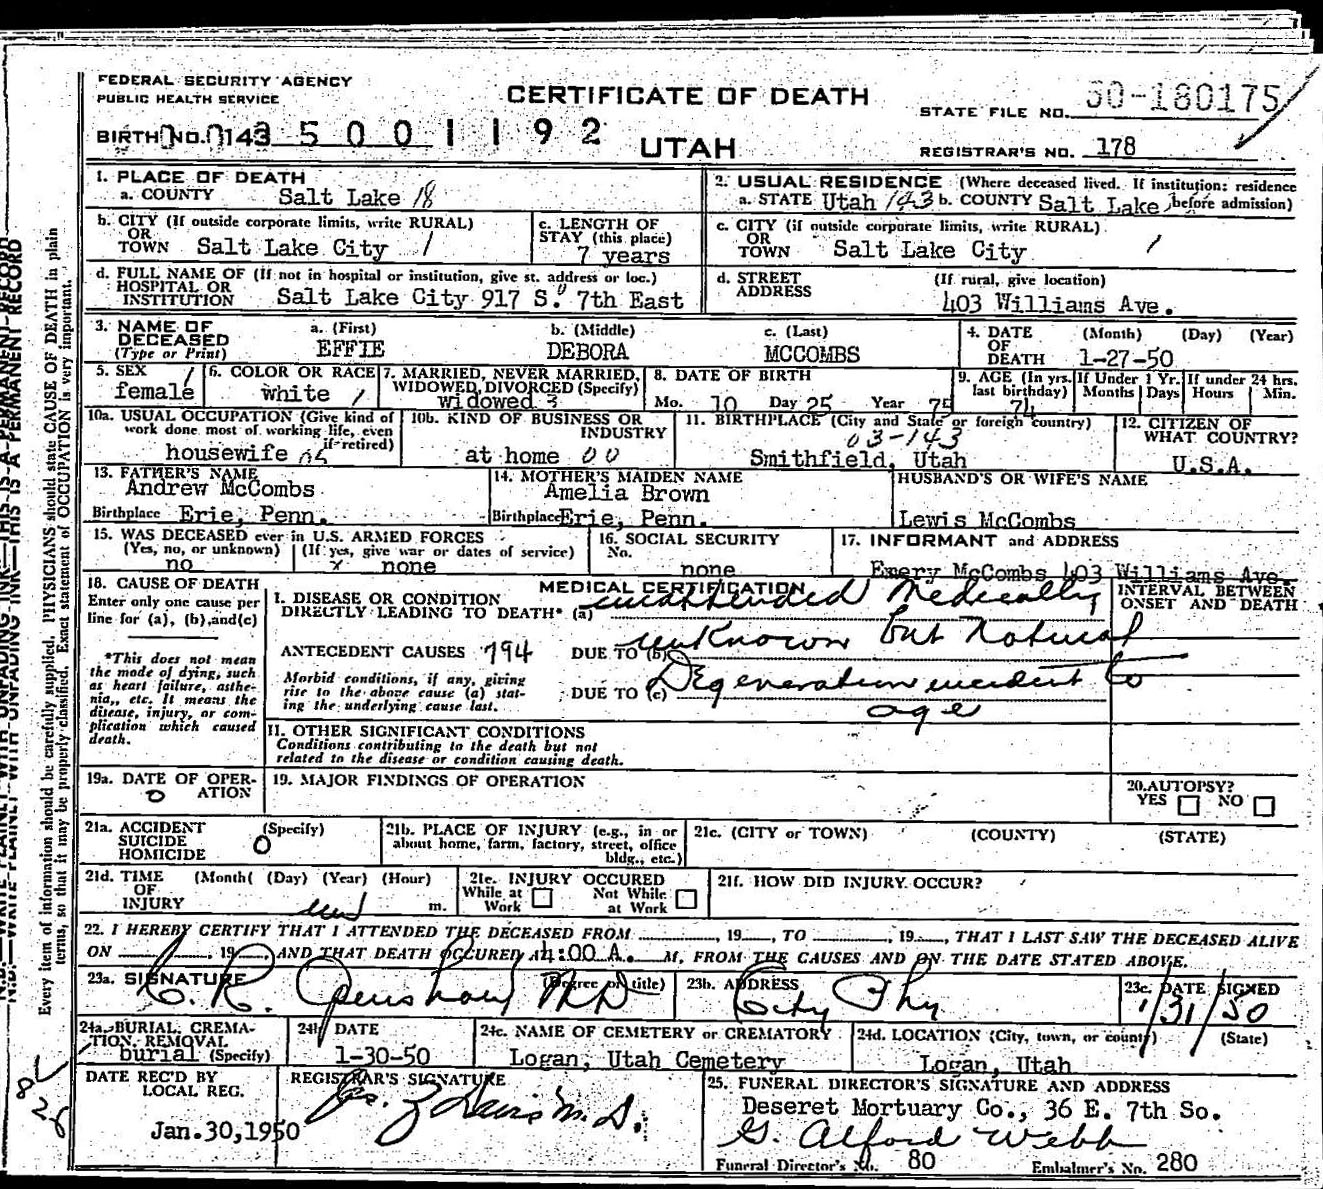 FEDERAL SECURITY AGENCY
PUBLIC HEALTH SERVICE
CERTIFICATE OF DEATH
STATE FILE NO. 50-180175
BIRTH NO. 143 5 0 0 1 1 9 2
UTAH
REGISTRAR'S NO. 178
1. PLACE OF DEATH
a. COUNTY Salt Lake 18
2. USUAL RESIDENCE (Where deceased lived. If institution: residence before admission)
a. STATE Utah 143 b. COUNTY Salt Lake
b. CITY (If outside corporate limits, write RURAL)
OR
TOWN Salt Lake City 1
c. LENGTH OF
STAY (this place)
7 years
c. CITY (if outside corporate limits, write RURAL)
OR
TOWN Salt Lake City 1
d. FULL NAME OF (If not in hospital or institution, give st. address or loc.)
HOSPITAL OR
INSTITUTION Salt Lake City 917 S. 7th East
d. STREET (If rural, give location)
ADDRESS
403 Williams Ave.
3. NAME OF
DECEASED
(Type or Print)
a. (First) b. (Middle) c. (Last)
EFFIE DEBORA MCCOMBS
4. DATE (Month) (Day) (Year)
OF
DEATH 1-27-50
5. SEX
female 1
6. COLOR OR RACE
white 1
7. MARRIED, NEVER MARRIED,
WIDOWED, DIVORCED (Specify)
widowed 3
8. DATE OF BIRTH
Mo. 10 Day 25 Year 75
9. AGE (In yrs. last birthday)
74
If Under 1 Yr.
Months Days
If under 24 hrs.
Hours Min.
10a. USUAL OCCUPATION (Give kind of
work done most of working life, even
if retired)
housewife
10b. KIND OF BUSINESS OR
INDUSTRY
at home 00
11. BIRTHPLACE (City and State or foreign country)
03-143
Smithfield, Utah
12. CITIZEN OF
WHAT COUNTRY?
U.S.A.
13. FATHER'S NAME
Andrew McCombs
Birthplace Erie, Penn.
14. MOTHER'S MAIDEN NAME
Amelia Brown
Birthplace Erie, Penn.
HUSBAND'S OR WIFE'S NAME
Lewis McCombs
15. WAS DECEASED ever in U.S. ARMED FORCES
(Yes, no, or unknown) (If yes, give war or dates of service)
no x none
16. SOCIAL SECURITY
No.
none
17. INFORMANT and ADDRESS
Emery McCombs 403 Williams Ave.
18. CAUSE OF DEATH
Enter only one cause per
line for (a), (b), and (c)
*This does not mean
the mode of dying, such
as heart failure, asthe-
nia,, etc. It means the
disease, injury, or com-
plication which caused
death.
MEDICAL CERTIFICATION
I. DISEASE OR CONDITION
DIRECTLY LEADING TO DEATH* (a) unattended Medically
ANTECEDENT CAUSES 794
DUE TO (b) unknown but natural
Morbid conditions, if any, giving
rise to the above cause (a) stat-
ing the underlying cause last.
DUE TO (c) Degeneration incident to
age
INTERVAL BETWEEN
ONSET AND DEATH
II. OTHER SIGNIFICANT CONDITIONS
Conditions contributing to the death but not
related to the disease or condition causing death.
19a. DATE OF OPER-
ATION
0
19. MAJOR FINDINGS OF OPERATION
20. AUTOPSY?
YES NO
21a. ACCIDENT (Specify)
SUICIDE
HOMICIDE
0
21b. PLACE OF INJURY (e.g., in or
about home, farm, factory, street, office
bldg., etc.)
21c. (CITY or TOWN) (COUNTY) (STATE)
21d. TIME (Month( (Day) (Year) (Hour)
OF
INJURY m.
21e. INJURY OCCURED
While at Work
Not While at Work
21f. HOW DID INJURY OCCUR?
22. I HEREBY CERTIFY THAT I ATTENDED THE DECEASED FROM , 19 , TO , 19 , THAT I LAST SAW THE DECEASED ALIVE
ON , 19 , AND THAT DEATH OCCURED AT 4:00 A. M, FROM THE CAUSES AND ON THE DATE STATED ABOVE.
23a. SIGNATURE (Degree or title)
C. R. Openshaw MD
23b. ADDRESS
City Phy
23c. DATE SIGNED
1/31/50
24a. BURIAL, CREMA-
TION, REMOVAL
burial (Specify)
24b DATE
1-30-50
24c. NAME OF CEMETERY or CREMATORY
Logan, Utah Cemetery
24d. LOCATION (City, town, or county) (State)
Logan, Utah
DATE REC'D BY
LOCAL REG.
Jan.30,1950
REGISTRAR'S SIGNATURE
25. FUNERAL DIRECTOR'S SIGNATURE AND ADDRESS
Deseret Mortuary Co., 36 E. 7th So.
G. Alford Webb
Funeral Director's No. 80 Embalmer's No. 280
Every item of information should be carefully supplied. PHYSICIANS should state CAUSE OF DEATH in plain
terms, so that it may be properly classified. Exact statement of OCCUPATION is very important.
N.B.—WRITE PLAINLY WITH UNFADING INK—THIS IS A PERMANENT RECORD